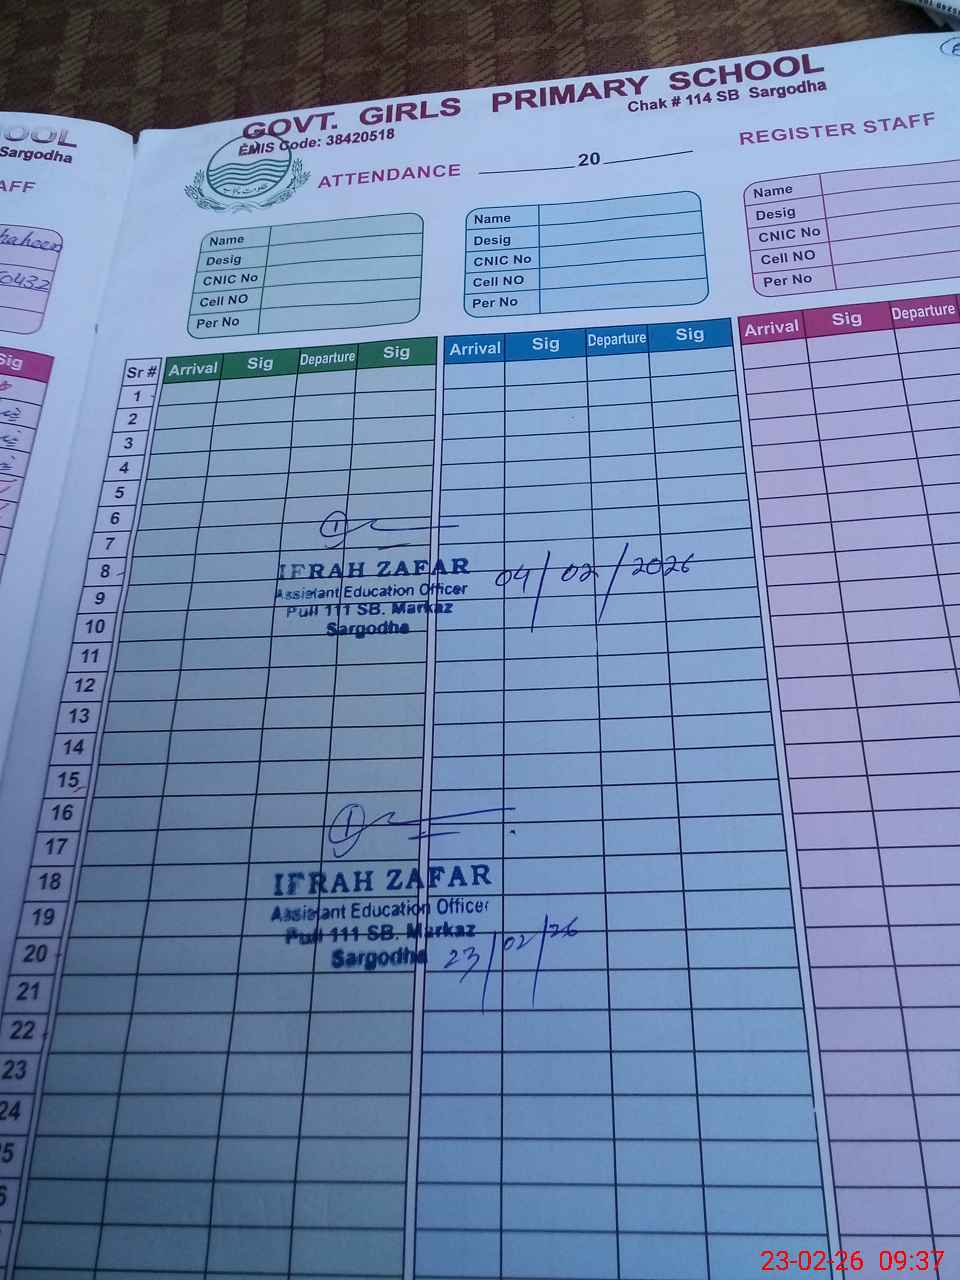 OOL
Sargodha
AFF
haheen
0432
Sig
GOVT. GIRLS PRIMARY SCHOOL
EMIS Code: 38420518
Chak # 114 SB Sargodha
ATTENDANCE 20
REGISTER STAFF
Name
Desig
CNIC No
Cell NO
Per No
Name
Desig
CNIC No
Cell NO
Per No
Name
Desig
CNIC No
Cell NO
Per No
Sr # Arrival Sig Departure Sig Arrival Sig Departure Sig Arrival Sig Departure
1
2
3
4
5
6
7
8
9
10
11
12
13
14
15
16
17
18
19
20
21
22
23
24
5
6
IFRAH ZAFAR
Assistant Education Officer
Pull 111 SB. Markaz
Sargodha
04/02/2026
IFRAH ZAFAR
Assistant Education Officer
Pull 111 SB. Markaz
Sargodha
23/02/26
23-02-26 09:37